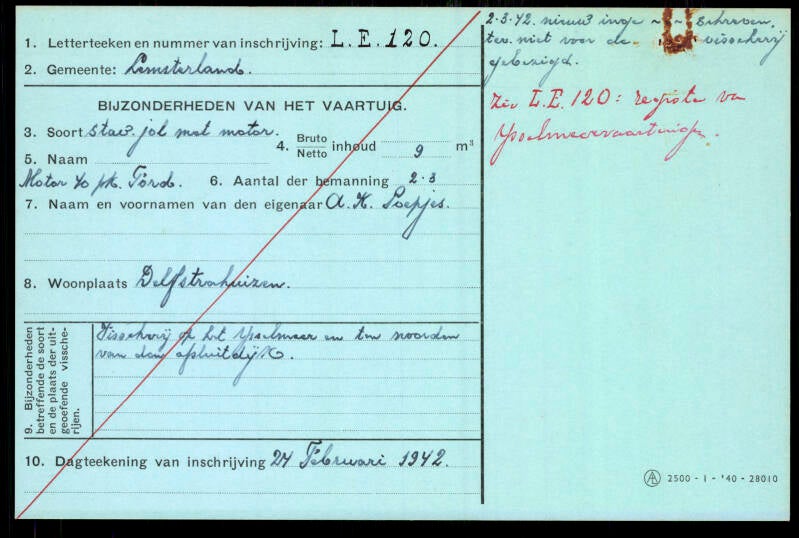 1. Letterteeken en nummer van inschrijving: L.E. 120.
2. Gemeente: Lemsterland.
BIJZONDERHEDEN VAN HET VAARTUIG.
3. Soort staw. jol met motor.
4. Bruto Netto inhoud 9 m³
5. Naam
Motor 40 pk. Ford. 6. Aantal der bemanning 2-3
7. Naam en voornamen van den eigenaar A. H. Poepjes.
8. Woonplaats Delfstrahuizen.
9. Bijzonderheden betreffende de soort en de plaats der uitgeoefende visscherijen.
Visscherij op het Ysselmeer en ten noorden
van den afsluitdijk.
10. Dagteekening van inschrijving 24 Februari 1942.
2-3-42. nieuw inge~~schreven,
niet voor de visscherij
gebezigd.
Zie L.E. 120: register v
Ysselmeervaartuigen.
A 2500 - 1 - '40 - 28010